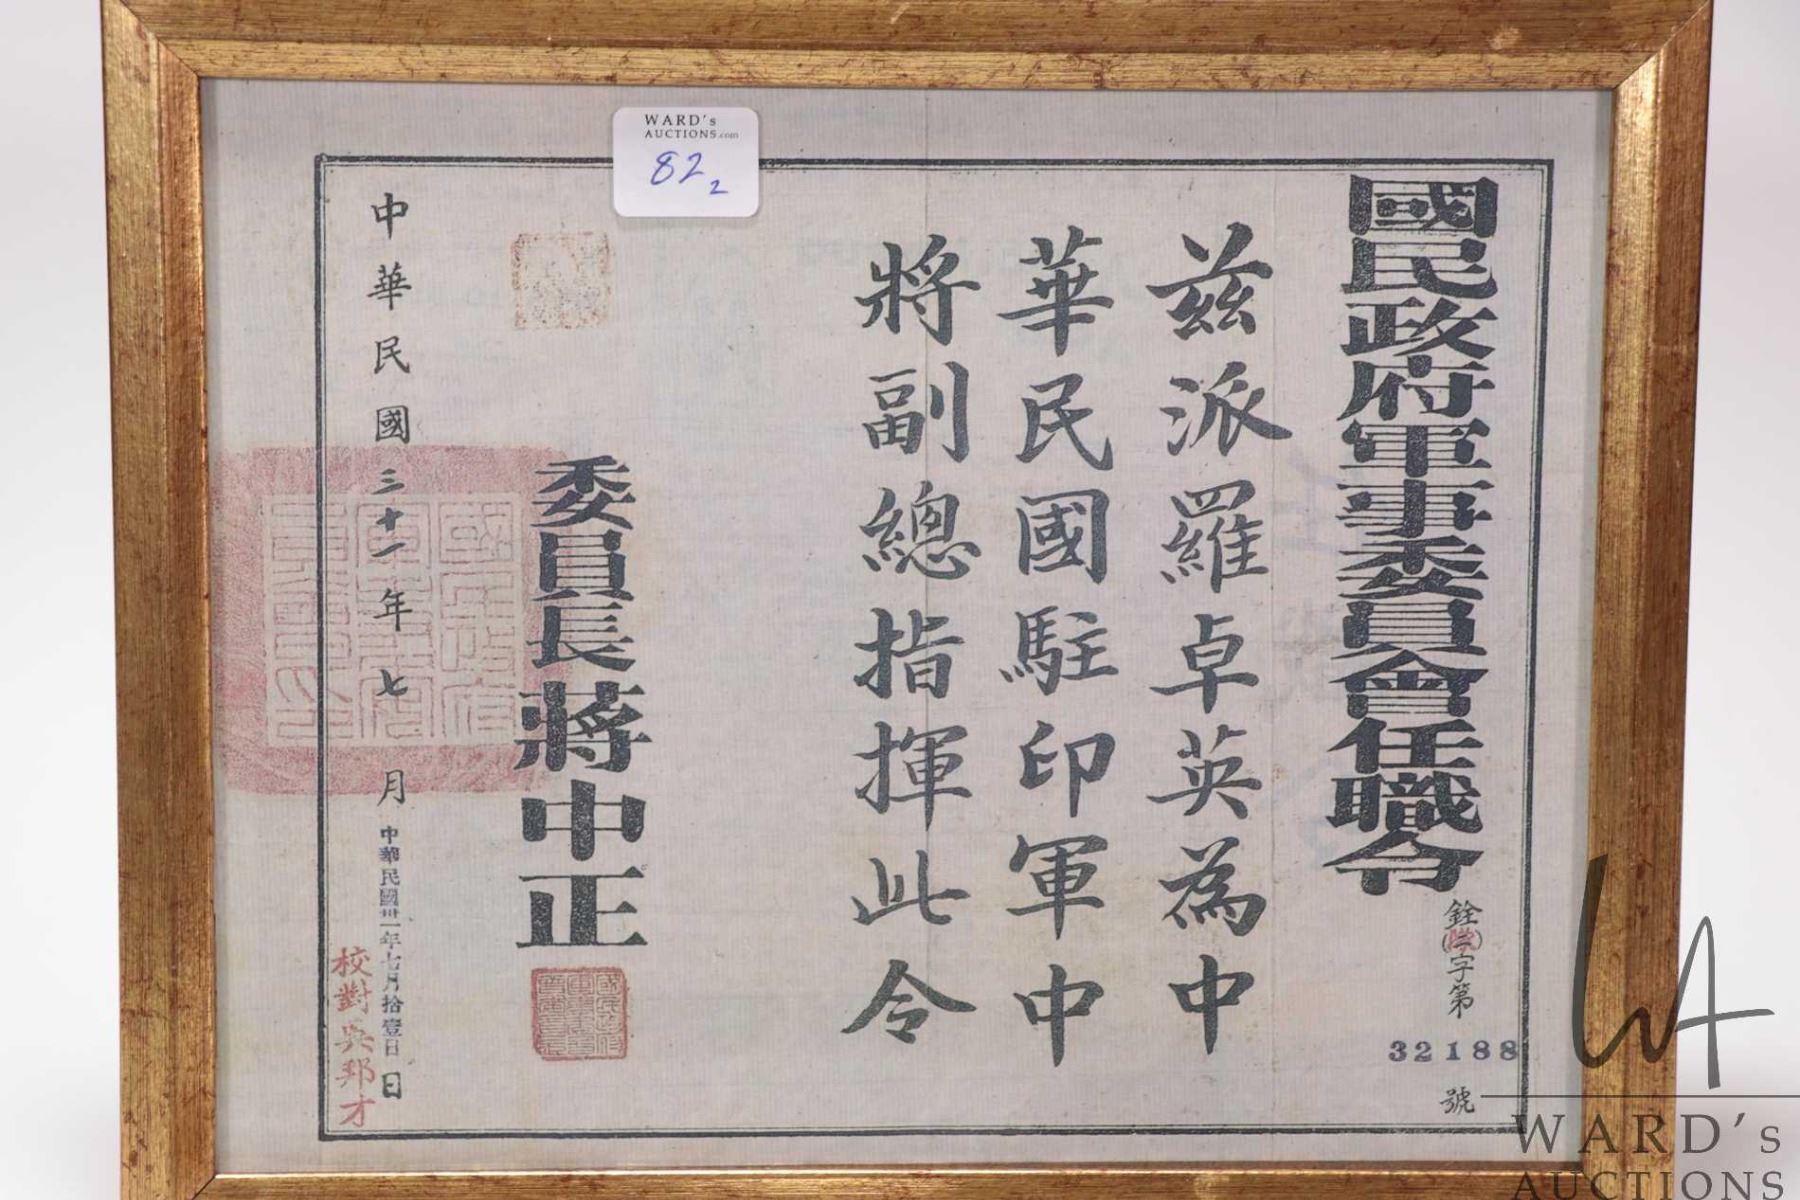 國民政府軍事委員會任職令
銓(二)字第
32188
號
茲派羅卓英為中
華民國駐印軍中
將副總指揮此令
委員長蔣中正
中華民國三十一年七月日
中華民國卅一年七月拾壹日
校對吳邦才
WARD's
AUCTIONS.com
82 2
WARD's
AUCTIONS